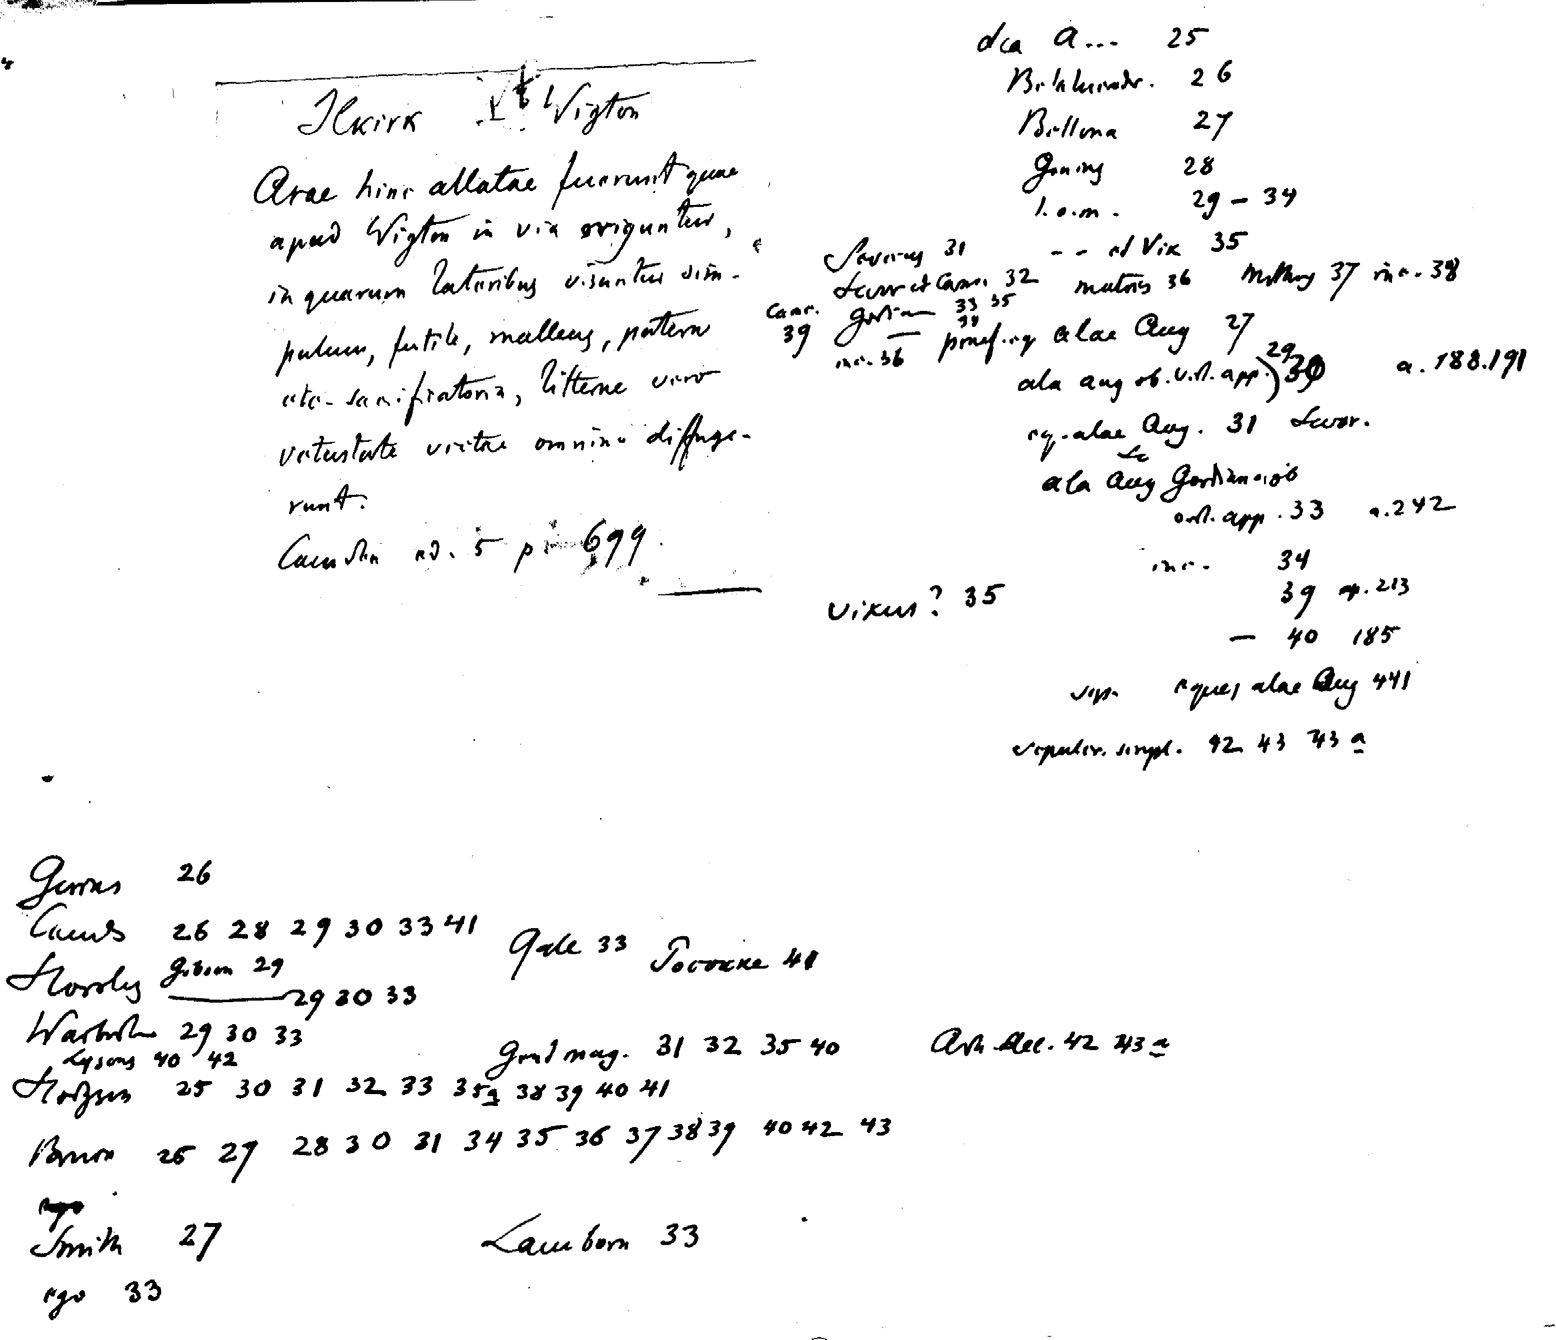 Ilkirk Wigton
Arae hinc allatae fuerunt quae
apud Wigton in via eriguntur,
in quarum lateribus visuntur sim-
pulum, futile, malleus, patera
etc. sacrificatoria, litterae vero
vetustate victae omnino diffuge-
runt.
Camden ed. 5 p. 699
dea A... 25
Belatucadr. 26
Bellona 27
Genius 28
I.o.m. 29 - 34
-- et Vix 35
Severus 31
Sever et Carac. 32 matres 36 37 inc. 38
Gordian 33 35
39 praef. eq alae Aug 27
inc. 36
ala aug ob. v.t. app. 29 30 a. 188.191
eq. alae Aug. 31 Sever.
ala Aug Gordiana ob
virt. app. 33 a. 242
inc. 34
39 ap. 213
— 40 185
vixus? 35
sep. eques alae Aug 41
sepulcr. simpl. 42 43 43 a
26
Camd 26 28 29 30 33 41
Gale 33 Pococke 41
Gibson 29
Horsley 29 30 33
Warburton 29 30 33
Lysons 40 42
Gent mag. 31 32 35 40
Arch Ael. 42 43 a
Hodgson 25 30 31 32 33 35 38 39 40 41
Bruce 25 27 28 30 31 34 35 36 37 38 39 40 42 43
ego
Smith 27
Lamborn 33
ego 33